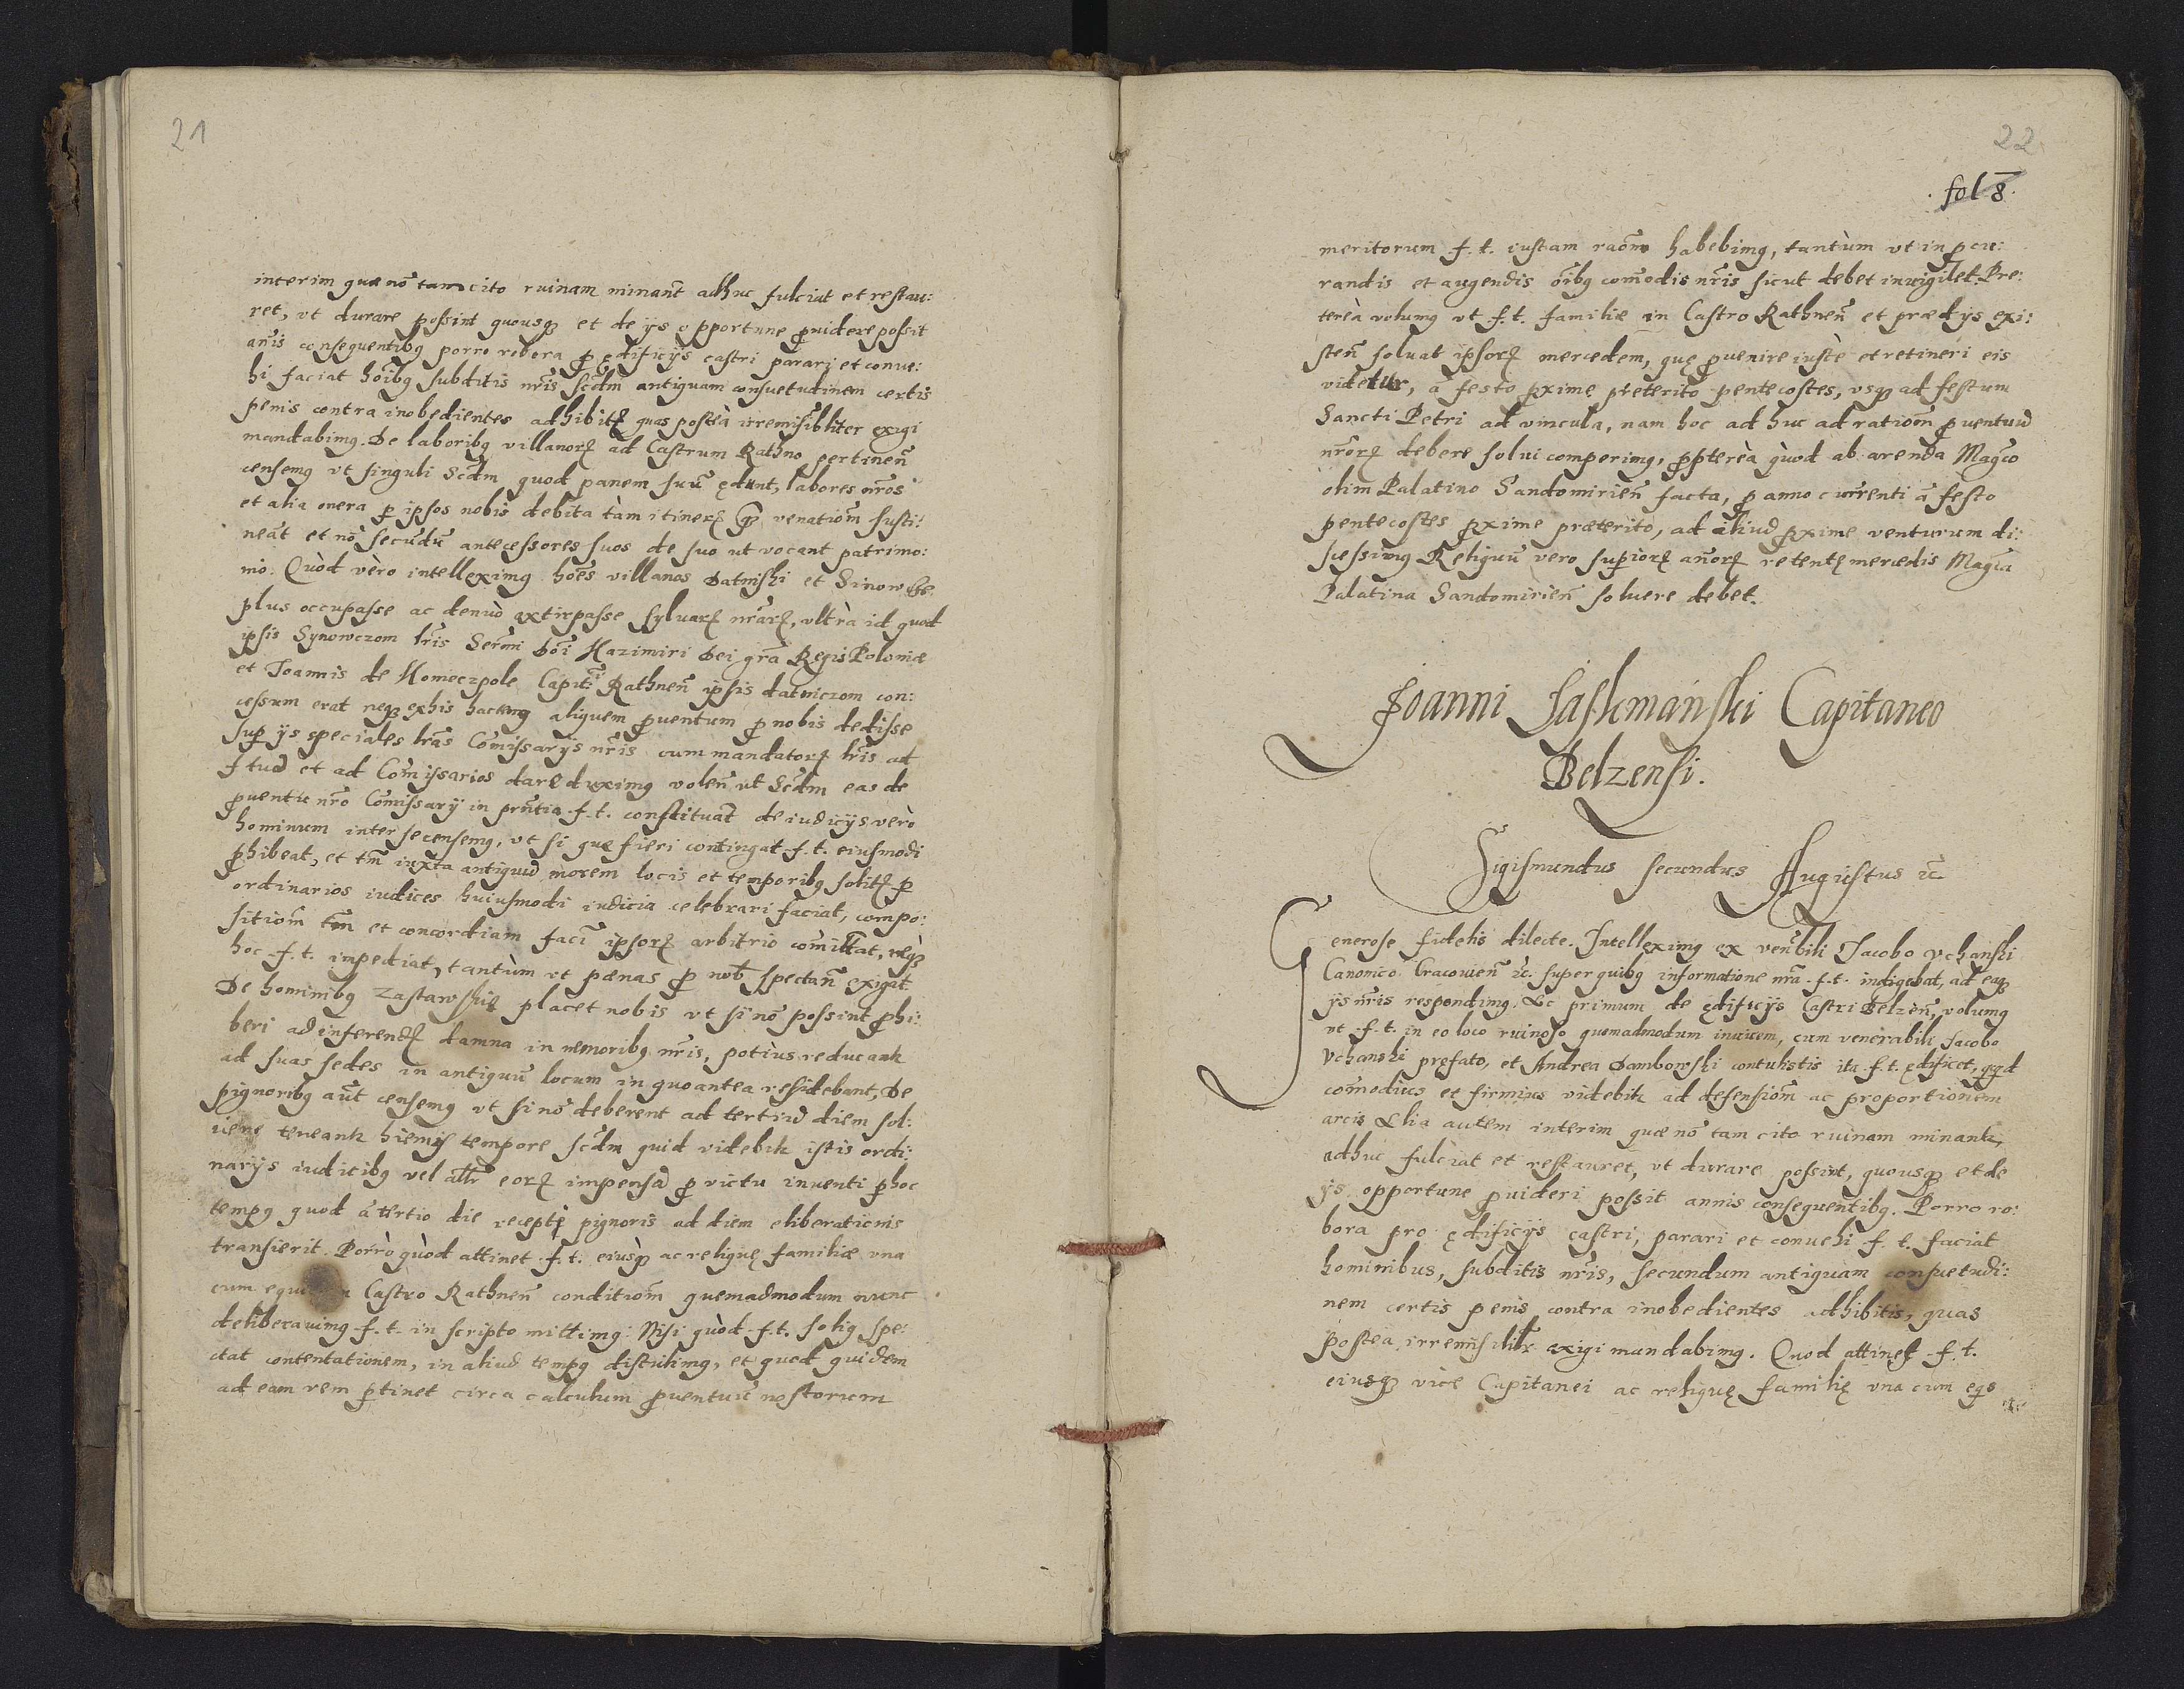 21
interim quæ nõ tam cito ruinam minant̃ adhuc fulciat et restau:
ret, vt durare possint quousq̢ et de ijs opportune ꝓuidere possit
añis consequentibꝯ porro robora ꝓ ędificijs castri parari et conve:
hi faciat hoĩbꝯ subditis nr̃is scd̃m antiquam consuetudinem certis
penis contra inobedientes adhibitꝭ quas posteà irremisibliter exigi
mandabimꝯ. De laboribꝯ villanorꝝ ad Castrum Rathno pertinen̄
censemꝯ vt singuli scd̃m quod panem suũ ędunt, labores nr̃os
et alia onera ꝑ ipsos nobis debita tàm itinerꝝ qꝫ venatiom̃ susti:
neãt et nõ secundũ antecessores suos de suo ut vocant patrimo:
nio. Quòd vèro intelleximꝯ hoẽs villanos Datniski et Sinowcze
plus occupasse ac denuò extirpasse sylvarꝝ nr̃arꝝ, vltrà id quod
ipsis Synowczom lr̃is Serm̃i Dõi Kazimiri Dei grã Regis Poloniæ
et Joannis de Konieczpole Capit̃i Rathnen̄ ipsis datniczom con:
cessum erat neqꝫ ex his hactenꝯ aliquem ꝓuentum ꝓ nobis dedisse
sup̱ ijs speciales lr̃as Com̃issarijs nr̃is cum mandatorꝝ lr̃is ad
f tuã et ad Com̃issarios dare duximꝯ volen̄ ut Scd̃m eas de
ꝓuentu nr̃o Com̃issarij in prñtia f. t. constituãt de iudicijs verò
hominum inter se censemꝯ, vt si quę fieri contingat f. t. eiusmodi
ꝓhibeat, et tm̃ iuxta antiquũ morem locis et temporibꝯ solitꝭ ꝑ
ordinarios iudices huiusmodi iudicia celebrari faciat, compo:
sitiom̃ tm̃ et concordiam faci ipsorꝝ arbitrio com̃ittat, neqꝫ
hoc f. t. inpediat, tantùm vt pænas ꝓ nob̃ spectan̄ exigat
De hominibꝯ Zastawskie placet nobis vt si nõ possint ꝓhi:
beri ad inferendꝭ damna in nemoribꝯ nr̃is, potiùs reducantꝛ
ad suas sedes in antiquũ locum in quo antea residebant, De
pignoribꝯ aũt censemꝯ vt si nõ deberent ad tertiũ diem sol:
uere teneantꝛ hiemis tempore scd̃m quid videbitꝛ istis ordi:
narijs iudicibꝯ vel altr̃ eorꝝ impensa ꝓ victu inuenti ꝑ hoc
tempꝯ quod à tertio die recepti pignoris ad diem eliberationis
transierit. Porrò quòd attinet f. t. eiusqꝫ ac reliquę familiæ vna
cum equ Castro Rathnen̄ conditiom̃ quemadmodum nunc
deliberauimꝯ f. t. in scripto mittimꝯ. Nisi quòd f. t. soliꝯ spe:
ctat contentationem, in aliud tempꝯ distulimꝯ, et quod quidem
ad eam rem ꝑtinet circa calculum ꝓuentuũ nostorum
22
fol 8.
meritorum f. t. iustam raõm habebimꝯ, tantùm vt in ꝓcu:
randis et augendis oĩbꝯ com̃odis nr̃is sicut debet inuigilet. Pre:
tereà volumꝯ vt f. t. familiæ in Castro Rathnen̄ et prædijs exi:
sten̄ soluat ipsorꝝ mercedem, quę ꝓuenire iustè et retineri eis
videtur, à festo ꝓxime pręterito pentecostes, vsqꝫ ad festum
Sancti Petri ad vincula, nam hoc ad huc ad ratiom̃ ꝓuentuũ
nr̃orꝝ debere solui comperimꝯ, ꝓptereà quòd ab arenda Magco
olim Palatino Sandomirien̄ facta, ꝓ anno currenti à festo
pentecostes ꝓxime præterito, ad aliud ꝓxime venturum di:
scessimꝯ Reliquũ vero superiorꝝ añorꝝ retentę mercedis Magca
Palatina Sandomirien̄ soluere debet.
Joanni Jaskmański Capitaneo
Belzensi.
Sigismundus secundus Augustus ꝛc̃
Generose fidelis dilecte. Intelleximꝯ ex ven̄bili Jacobo Vchanski
Canonico Cracouien̄ ꝛc. super quibꝯ informatione nr̃a f. t. indigebat, ad eaqꝫ
ijs nr̃is respondimꝯ. Ac primum de ędificijs Castri Belzen̄, volumꝯ
vt f. t. in eo loco ruinoso quemadmodum inuicem, cum venerabili Jacobo
Vchanski pręfato, et Andrea Dambowski contulistis ita f. t. ędificet, qꝗd
com̃odius et firmius videbitꝛ ad defensiom̃ ac proportionem
arcis Alia autem interim quæ nõ tam cito ruinam minantꝛ,
adhuc fulciat et restauret, vt durare possint, quousqꝫ et de
ijs opportune ꝓuideri possit annis consequentibꝯ. Porro ro:
bora pro ędificijs castri, parari et conuehi f. t. faciat
hominibus, subditis nr̃is, secundum antiquam consuetudi:
nem certis penis contra inobedientes adhibitis, quas
postea irremisibilr̃ exigi mandabimꝯ. Quod attinet f. t.
eiusqꝫ vice Capitanei ac reliquę familię vna cum eqs